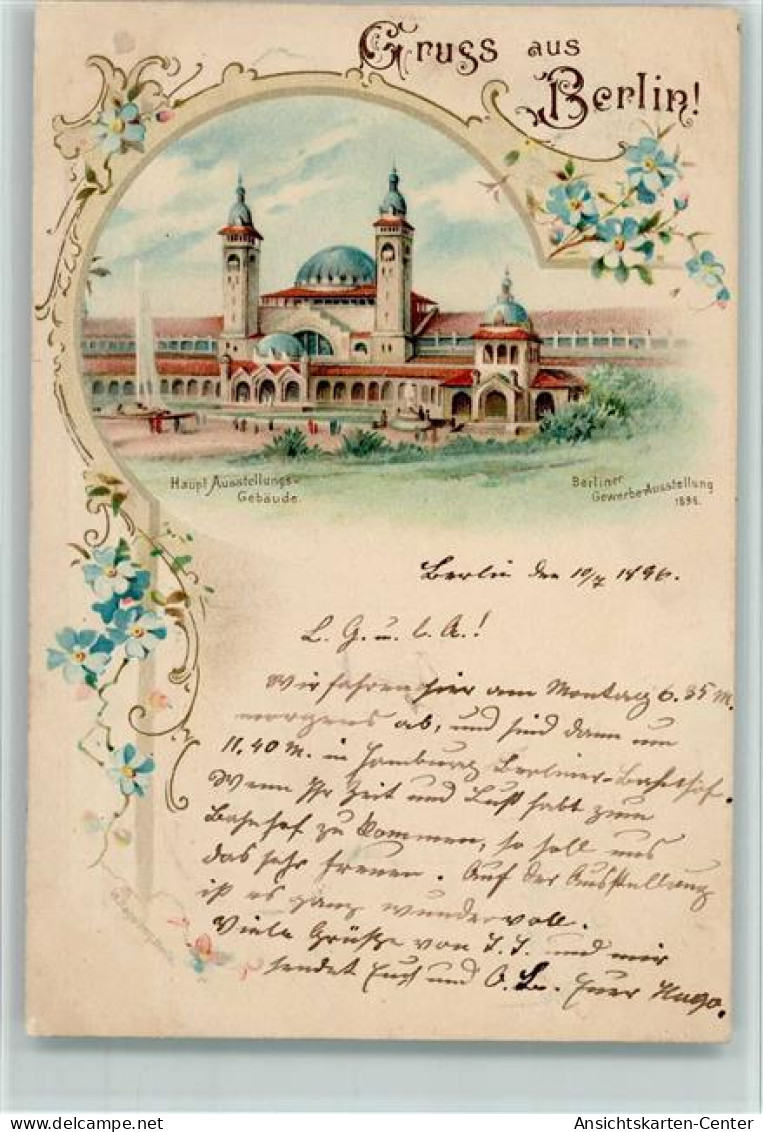 Gruss aus
Berlin!
Haupt Ausstellungs-
Gebäude.
Berliner
Gewerbe-Ausstellung
1896.
Berlin den 10/7 1896.
L. G. u. l. A.!
Wir fahren hier am Montag 6.35 M.
morgens ab, und sind dann um
11.40 M. in Hamburg Berliner-Bahnhof.
Wenn Ihr Zeit und Lust habt zum
Bahnhof zu kommen, so soll uns
das sehr freuen. Auf der Ausstellung
ist es ganz wundervoll.
Viele Grüße von und mir
sendet Euch und O. L. Euer Hugo.
Ansichtskarten-Center